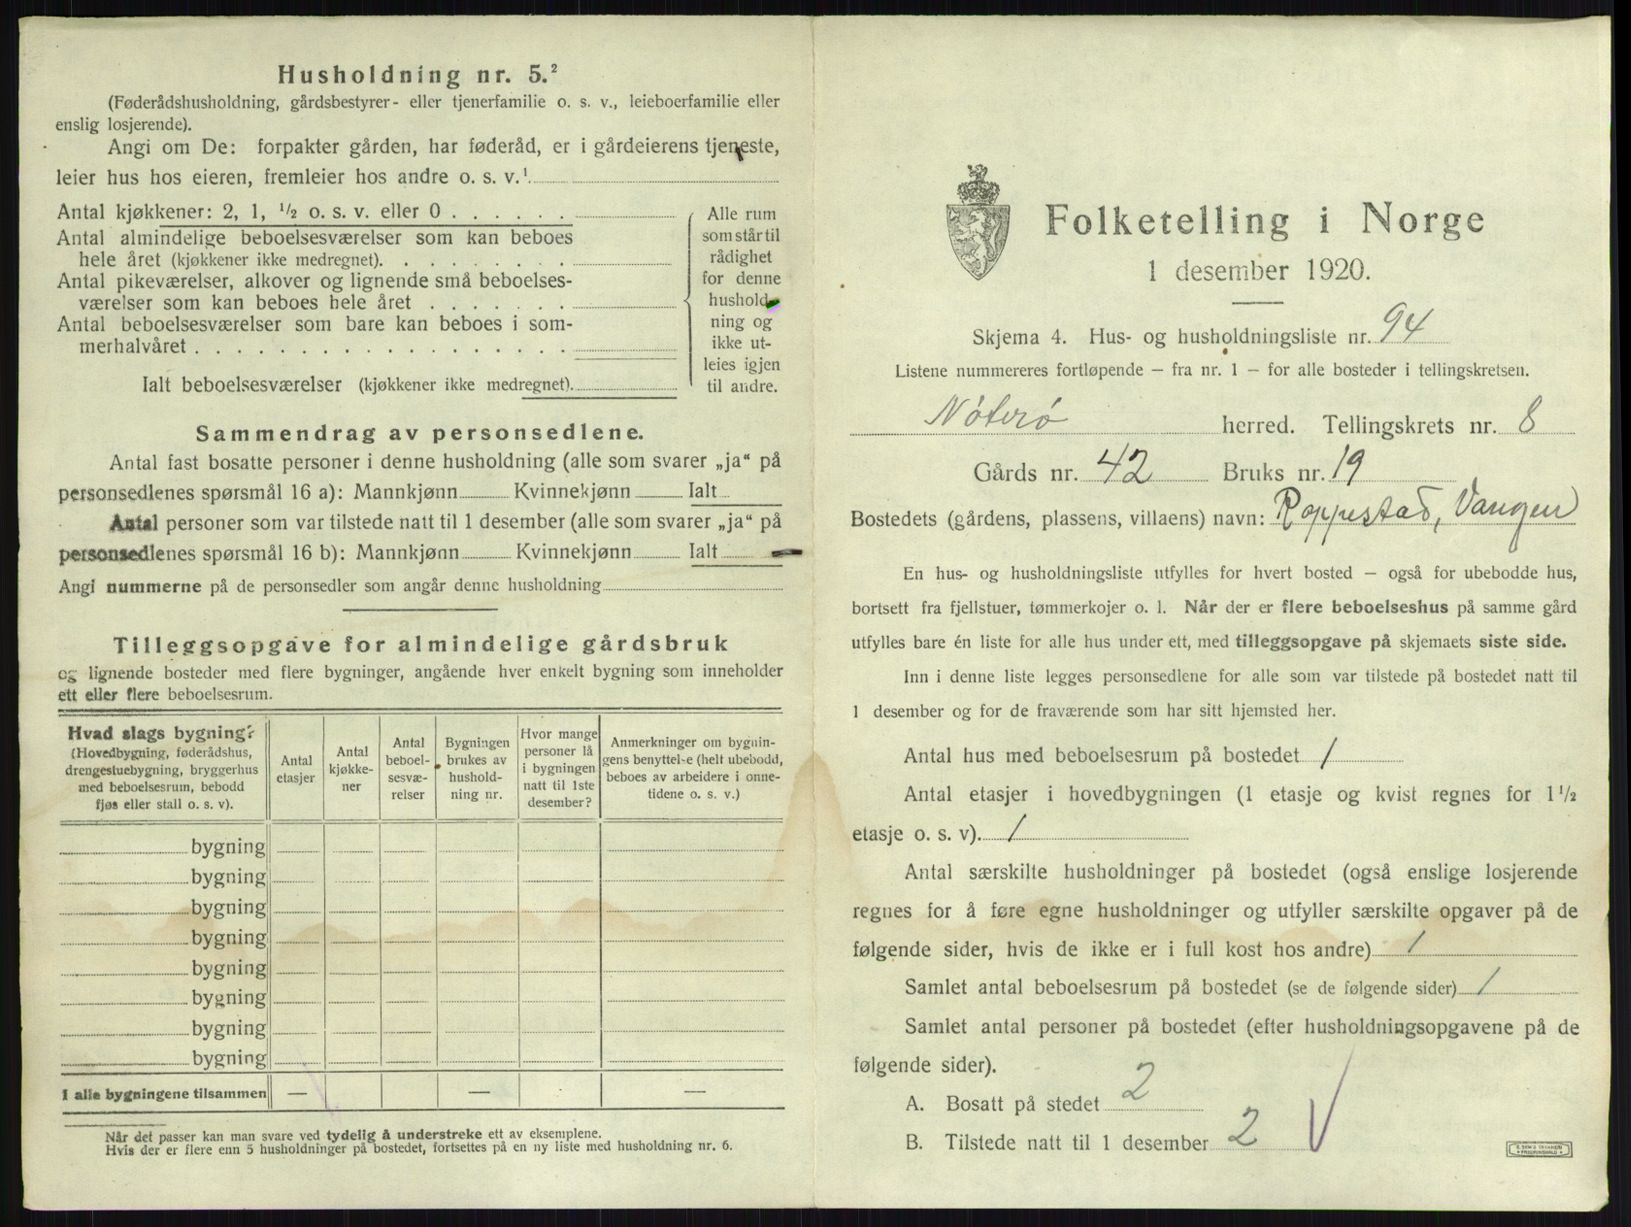 Husholdning nr. 5.²
(Føderådshusholdning, gårdsbestyrer- eller tjenerfamilie o. s. v., leieboerfamilie eller
enslig losjerende).
Angi om De: forpakter gården, har føderåd, er i gårdeierens tjeneste,
leier hus hos eieren, fremleier hos andre o. s. v.¹
Antal kjøkkener: 2, 1, ½ o. s. v. eller 0 . . . . . .
Antal almindelige beboelsesværelser som kan beboes
hele året (kjøkkener ikke medregnet). . . . . . . . .
Antal pikeværelser, alkover og lignende små beboelses-
værelser som kan beboes hele året . . . . . . .
Antal beboelsesværelser som bare kan beboes i som-
merhalvåret . . . . . . . . . . . . . . . . . .
Ialt beboelsesværelser (kjøkkener ikke medregnet).
Alle rum
som står til
rådighet
for denne
hushold-
ning og
ikke ut-
leies igjen
til andre.
Sammendrag av personsedlene.
Antal fast bosatte personer i denne husholdning (alle som svarer „ja“ på
personsedlenes spørsmål 16 a): Mannkjønn Kvinnekjønn Ialt
Antal personer som var tilstede natt til 1 desember (alle som svarer „ja“ på
personsedlenes spørsmål 16 b): Mannkjønn Kvinnekjønn Ialt
Angi nummerne på de personsedler som angår denne husholdning
Tilleggsopgave for almindelige gårdsbruk
og lignende bosteder med flere bygninger, angående hver enkelt bygning som inneholder
ett eller flere beboelsesrum.
Hvad slags bygning?
(Hovedbygning, føderådshus,
drengestuebygning, bryggerhus
med beboelsesrum, bebodd
fjøs eller stall o. s. v).
Antal
etasjer
Antal
kjøkke-
ner
Antal
beboel-
sesvæ-
relser
Bygningen
brukes av
hushold-
ning nr.
Hvor mange
personer lå
i bygningen
natt til 1ste
desember?
Anmerkninger om bygnin-
gens benyttelse (helt ubebodd,
beboes av arbeidere i onne-
tidene o. s. v.)
bygning
bygning
bygning
bygning
bygning
bygning
bygning
bygning
I alle bygningene tilsammen — — — —
Når det passer kan man svare ved tydelig å understreke ett av eksemplene.
Hvis der er flere enn 5 husholdninger på bostedet, fortsettes på en ny liste med husholdning nr. 6.
Folketelling i Norge
1 desember 1920.
Skjema 4. Hus- og husholdningsliste nr. 94
Listene nummereres fortløpende — fra nr. 1 — for alle bosteder i tellingskretsen.
Nöterö herred. Tellingskrets nr. 8
Gårds nr. 42 Bruks nr. 19
Bostedets (gårdens, plassens, villaens) navn: Roppestad, Vangen
En hus- og husholdningsliste utfylles for hvert bosted — også for ubebodde hus,
bortsett fra fjellstuer, tømmerkojer o. l. Når der er flere beboelseshus på samme gård
utfylles bare én liste for alle hus under ett, med tilleggsopgave på skjemaets siste side.
Inn i denne liste legges personsedlene for alle som var tilstede på bostedet natt til
1 desember og for de fraværende som har sitt hjemsted her.
Antal hus med beboelsesrum på bostedet 1
Antal etasjer i hovedbygningen (1 etasje og kvist regnes for 1½
etasje o. s. v). 1
Antal særskilte husholdninger på bostedet (også enslige losjerende
regnes for å føre egne husholdninger og utfyller særskilte opgaver på de
følgende sider, hvis de ikke er i full kost hos andre) 1
Samlet antal beboelsesrum på bostedet (se de følgende sider) 1
Samlet antal personer på bostedet (efter husholdningsopgavene på de
følgende sider).
A. Bosatt på stedet 2
B. Tilstede natt til 1 desember 2